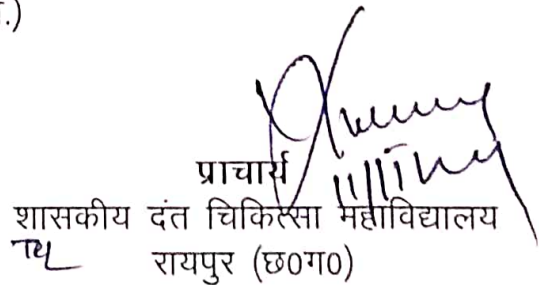 .)
प्राचार्य
शासकीय दंत चिकित्सा महाविद्यालय
रायपुर (छ0ग0)